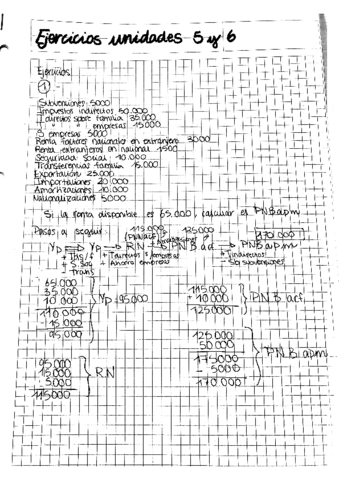 Ejercicios unidades 5 y 6
Ejercicios
①
Subvenciones 5000
Impuestos indirectos 50.000
I directos sobre familia 35000
" " " empresas 15000
S empresas 5000
Renta factores nacionales en extranjero 3000
Renta extranjeros en nacional 1500
Seguridad Social 10.000
Transferencias familia 15.000
Exportación 25.000
Importaciones 20.000
Amortizaciones 10.000
Nacionalizaciones 5000
Si la renta disponible es 65.000, calcular el PNBapm
Pasos a seguir
115.000 125000 170.000
YD YP RN PNBacf PNBapm
+ Tds/f + T directos s/empresas + Amortizaciones + T indirectos
+ S. Soc + Ahorro empresas - Sb subvenciones
- Trans
65.000
35.000
10.000
110.000
15.000
95.000
YP=95000
115000
+ 10000
125000
PNBacf
125.000
50.000
175000
- 5000
170.000
PNBapm
95.000
15.000
5.000
115000
RN